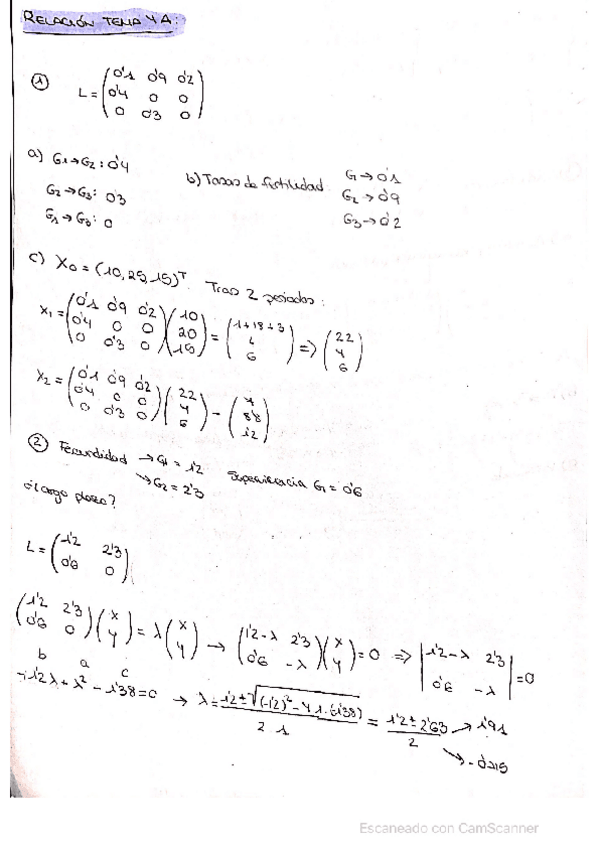 RELACIÓN TEMA 4A:
① L = (0'1 0'9 0'2
0'4 0 0
0 0'3 0)
a) G1→G2: 0'4
G2→G3: 0'3
G1→G3: 0
b) Tasas de fertilidad G1→0'1
G2→0'9
G3→0'2
c) X0 = (10, 25, 15)T. Tras 2 periodos:
X1 = (0'1 0'9 0'2
0'4 0 0
0 0'3 0) (10
20
15) = (1+18+3
4
6) => (22
4
6)
X2 = (0'1 0'9 0'2
0'4 0 0
0 0'3 0) (22
4
6) = (
8'8
1'2)
② Fecundidad →G1 = 1'2
→G2 = 2'3
Supervivencia G1 = 0'6
¿largo plazo?
L = (1'2 2'3
0'6 0)
(1'2 2'3
0'6 0) (x
y) = λ (x
y) → (1'2-λ 2'3
0'6 -λ) (x
y) = 0 => |1'2-λ 2'3
0'6 -λ| = 0
b a c
-1'2λ + λ² - 1'38 = 0 → λ = 1'2 ± √(-1'2)² - 4·1·(-1'38) / 2·1 = 1'2 ± 2'63 / 2 → 1'91
→ -0'715
Escaneado con CamScanner